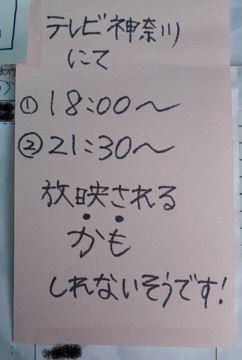 テレビ神奈川
にて
① 18:00〜
② 21:30〜
放映される
かも
しれないそうです!